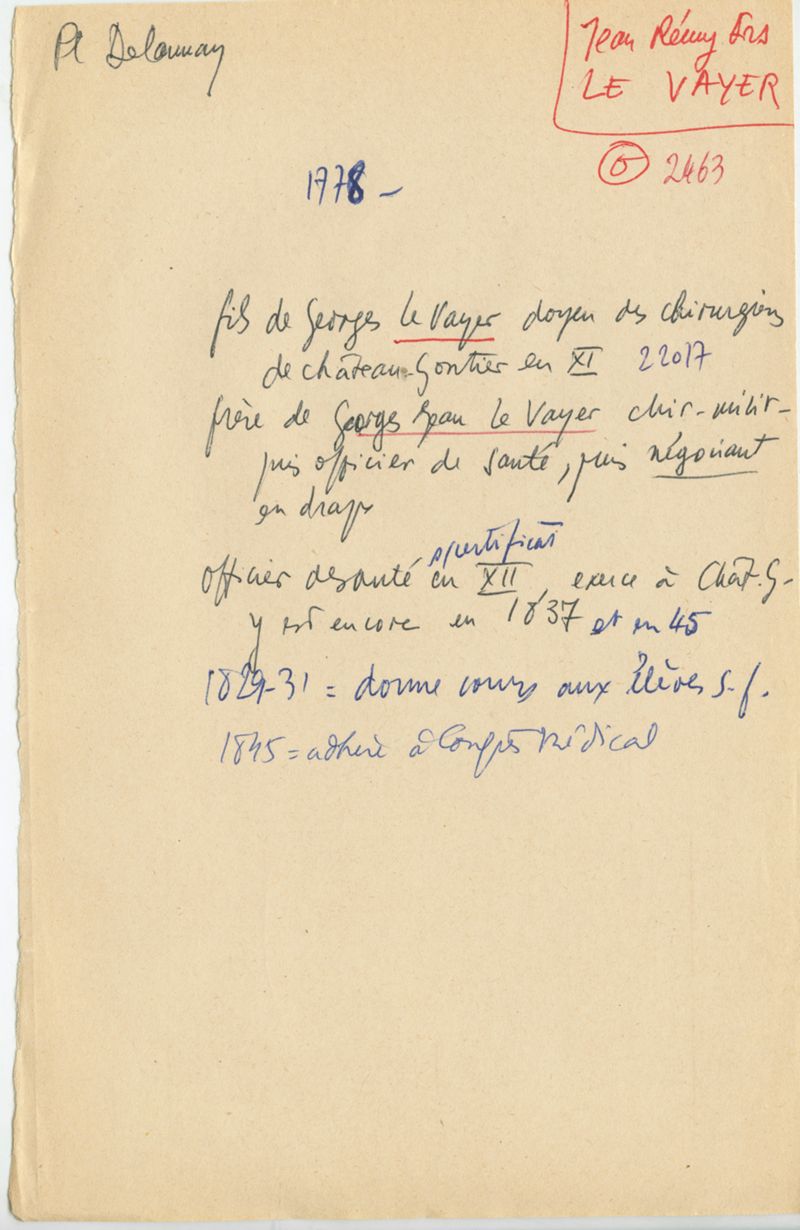 Pl Delaunay
Jean Rémy Frs
LE VAYER
6 2463
1778 -
fils de Georges Le Vayer doyen des chirurgiens
de château-Gontier en XI 22017
frère de Georges Jean Le Vayer chir-milit-
puis officier de santé, puis négociant
en draps
certificat
officier desanté en XII, exerce à Chât.G-
y est encore en 1837 et en 45
1829-31 = donne cours aux Élèves s.f.
1845 = adhère à Congrès Médical